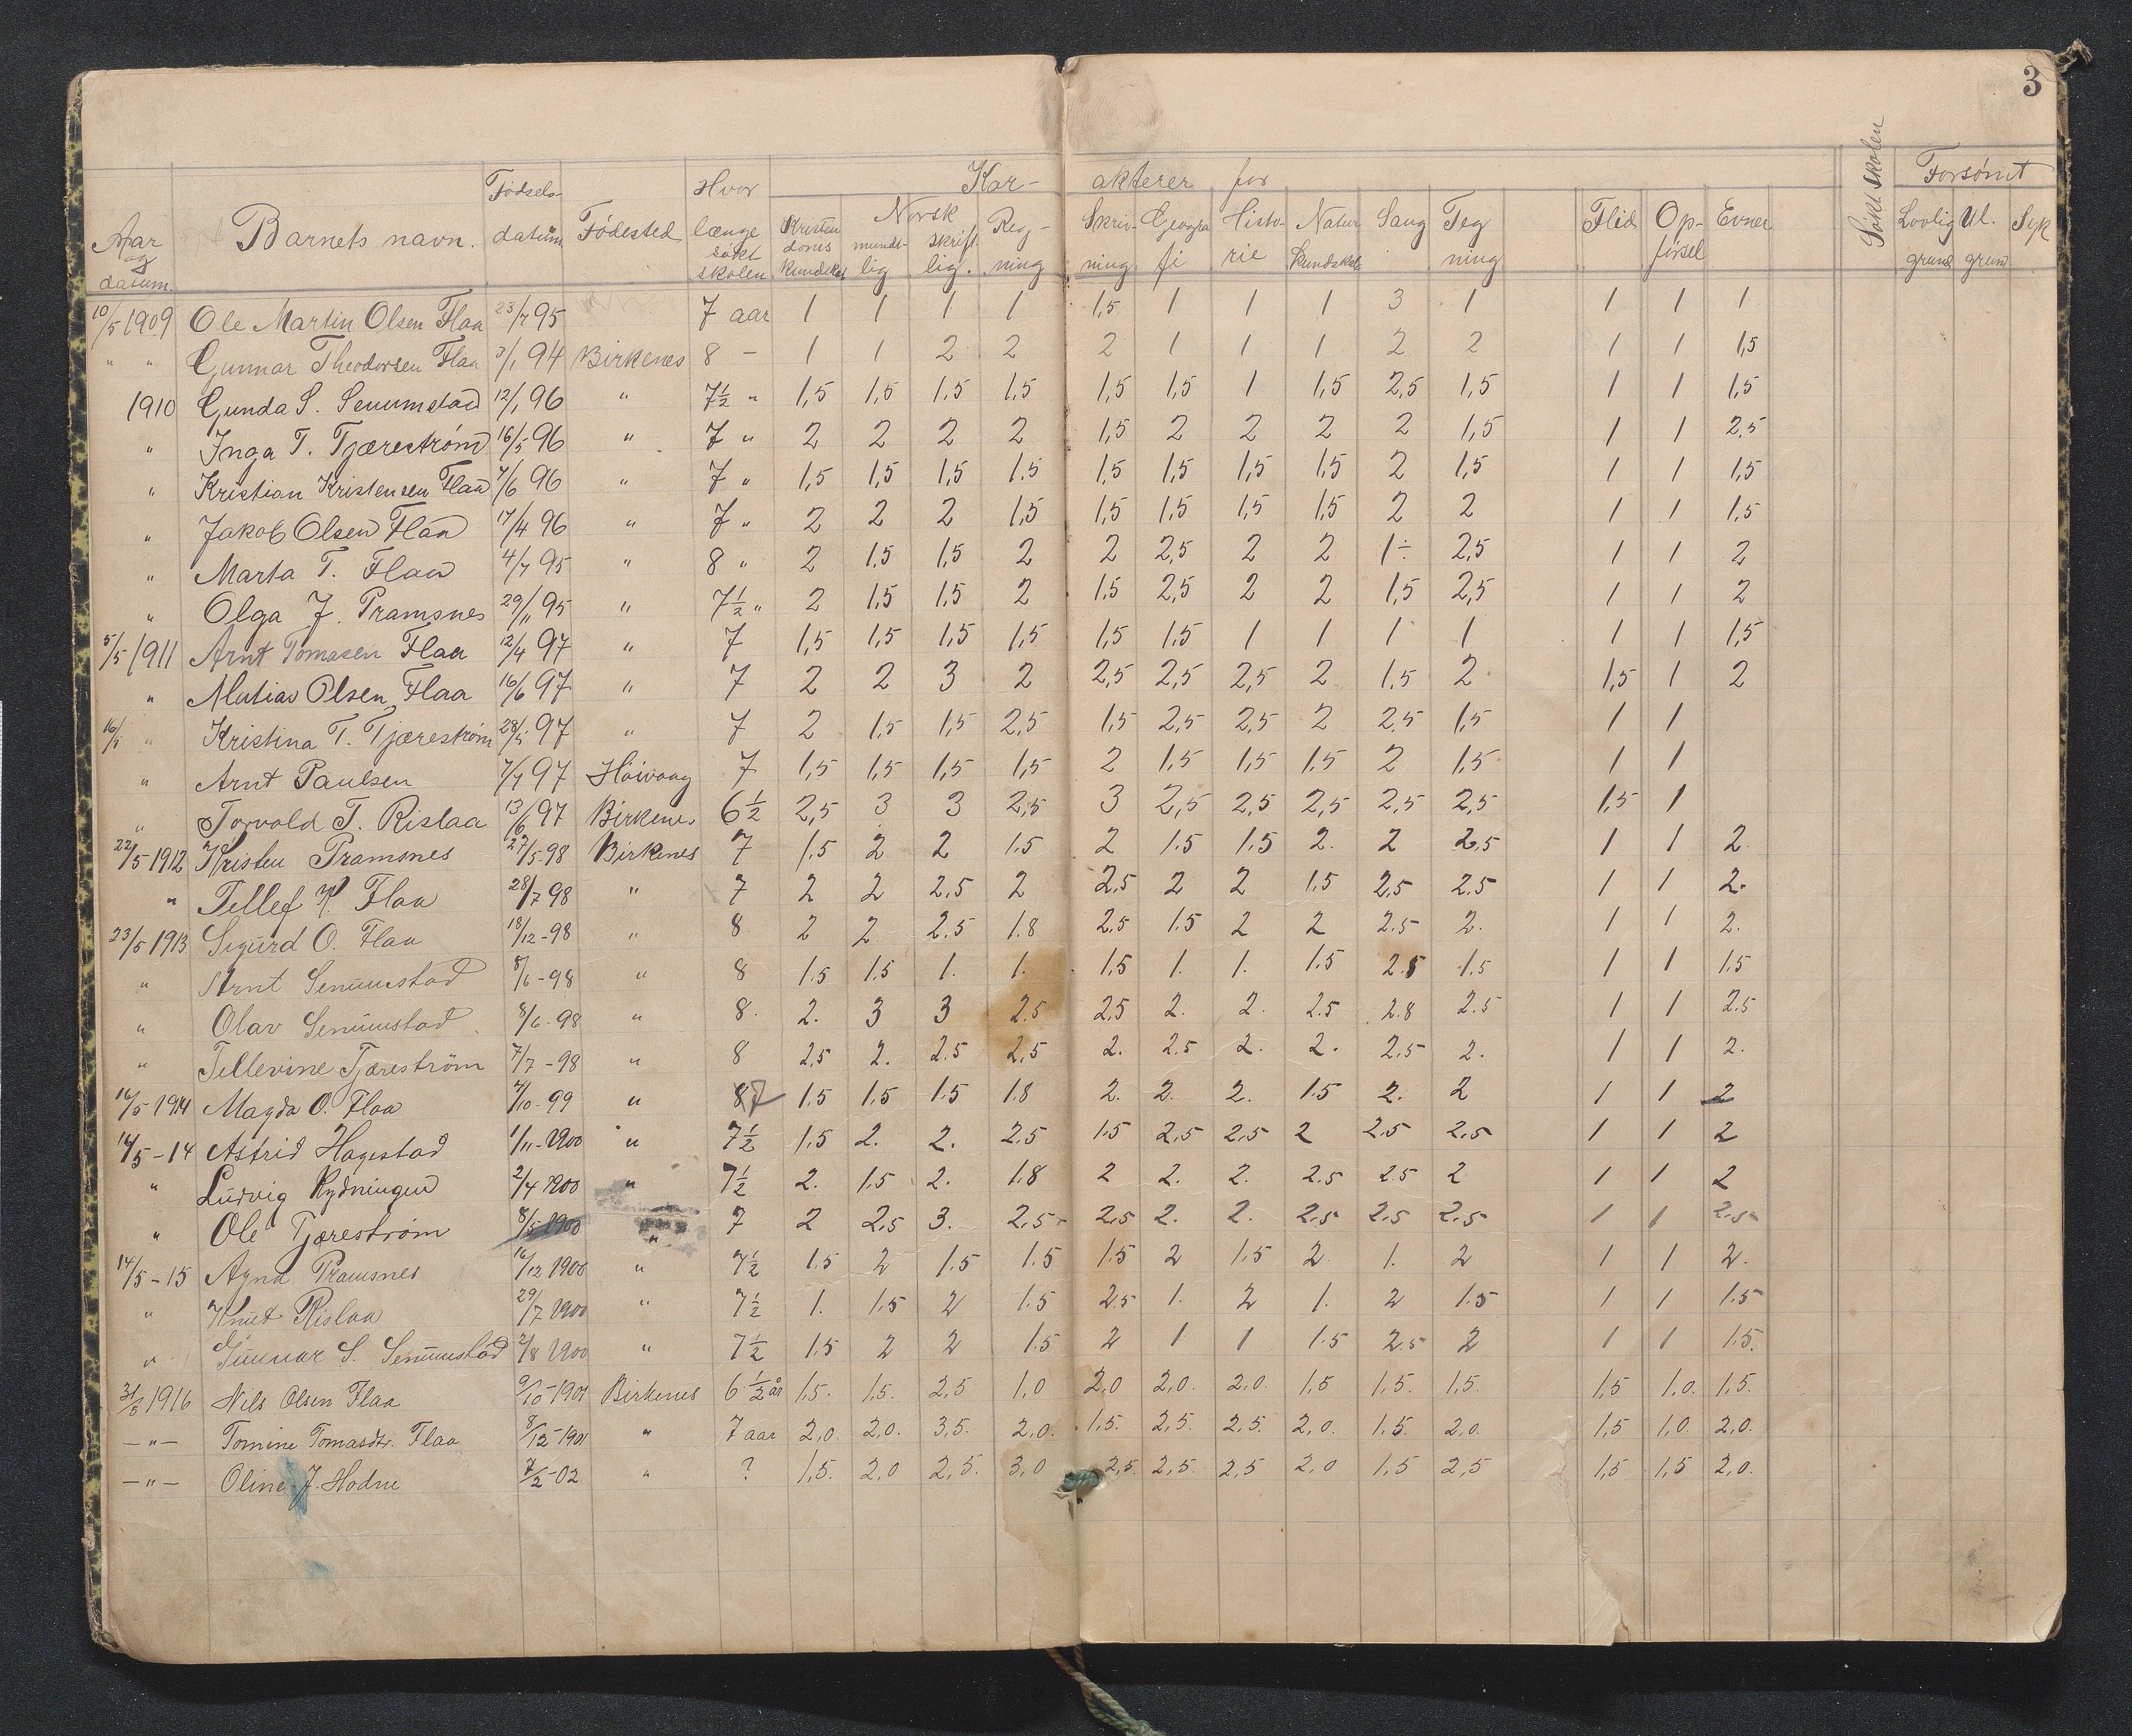 3
Kar- akterer for
Forsømt
Aar og datum. Barnets navn. Fødsels datum Fødested Hvor længe søkt skolen Kristendoms kundskab Norsk mundtlig skriftlig. Regning Skrivning Geografi Historie Naturkundskab Sang Tegning Flid Opførsel Evner Søkt skolen Lovlig grund Ul. grund Syk
10/5 1909 Ole Martin Olsen Flaa 23/7 95 7 aar 1 1 1 1 1,5 1 1 1 3 1 1 1 1
" " Gunnar Theodorsen Flaa 3/1 94 Birkenes 8 – 1 1 2 2 2 1 1 1 2 2 1 1 1,5
1910 Gunda S. Senumstad 12/1 96 " 7½ " 1,5 1,5 1,5 1,5 1,5 1,5 1 1,5 2,5 1,5 1 1 1,5
" Inga T. Tjærestrøm 16/5 96 " 7 " 2 2 2 2 1,5 2 2 2 2 1,5 1 1 2,5
" Kristian Kristensen Flaa 7/6 96 " 7 " 1,5 1,5 1,5 1,5 1,5 1,5 1,5 1,5 2 1,5 1 1 1,5
" Jakob Olsen Flaa 17/4 96 " 7 " 2 2 2 1,5 1,5 1,5 1,5 1,5 2 2 1 1 1,5
" Marta T. Flaa 4/7 95 " 8 " 2 1,5 1,5 2 2 2,5 2 2 1÷ 2,5 1 1 2
" Olga J. Pramsnes 29/11 95 " 7½ " 2 1,5 1,5 2 1,5 2,5 2 2 1,5 2,5 1 1 2
5/5 1911 Arnt Tomasen Flaa 12/4 97 " 7 1,5 1,5 1,5 1,5 1,5 1,5 1 1 1 1 1 1 1,5
" Matias Olsen Flaa 16/6 97 " 7 2 2 3 2 2,5 2,5 2,5 2 1,5 2 1,5 1 2
16/5 " Kristina T. Tjærestrøm 28/5 97 " 7 2 1,5 1,5 2,5 1,5 2,5 2,5 2 2,5 1,5 1 1
" Arnt Paulsen 7/7 97 Høivaag 7 1,5 1,5 1,5 1,5 2 1,5 1,5 1,5 2 1,5 1 1
" Torvald T. Rislaa 13/6 97 Birkenes 6½ 2,5 3 3 2,5 3 2,5 2,5 2,5 2,5 2,5 1,5 1
22/5 1912 Kristen Pramsnes 27/5-98 Birkenes 7 1,5 2 2 1.5 2 1.5 1.5 2. 2 2,5 1 1 2.
" Tellef K. Flaa 28/7 98 " 7 2 2 2,5 2 2,5 2 2 1,5 2,5 2.5 1 1 2.
23/5 1913. Sigurd O. Flaa 18/12-98 " 8. 2 2 2.5 1.8 2,5 1.5 2 2 2.5 2. 1 1 2.
" Arnt Senumstad 8/6-98 " 8 1.5 1.5 1. 1. 1,5 1. 1. 1.5 2.5 1.5 1 1 1.5
" Olav Senumstad. 8/6-98 " 8. 2. 3 3 2.5 2,5 2. 2. 2.5 2.8 2.5 1 1 2.5
" Tellevine Tjæreström 7/7-98 " 8 2,5 2. 2.5 2,5 2. 2.5 2. 2. 2.5 2. 1 1 2.
16/5 1914 Magda O. Flaa 4/10-99 " 7 1.5 1.5 1.5 1.8 2. 2. 2. 1.5 2. 2 1 1 2
16/5-14 Astrid Hagestad 1/11-1900 " 7½ 1.5 2. 2. 2.5 1.5 2,5 2,5 2 2.5 2.5 1 1 2
" Ludvig Rydningen 2/4 1900 " 7½ 2. 1.5 2. 1.8 2 2. 2. 2.5 2.5 2 1 1 2
" Ole Tjæreström 8/5 1900 " 7 2 2,5 3. 2.5 2,5 2. 2. 2.5 2.5 2.5 1 1 2.5
14/5-15 Agna Pramsnes 16/12 1900 " 7½ 1.5 2 1.5 1.5 1.5 2 1.5 2 1. 2 1 1 2.
" Knut Rislaa 29/7 1900 " 7½ 1. 1.5 2 1.5 2.5 1. 2 1. 2 1.5 1 1 1.5
" Gunnar S. Senumstad 2/8 1900 " 7½ 1.5 2 2 1.5 2 1 1 1.5 2.5 2 1 1 1.5.
31/5 1916 Nils Olsen Flaa 9/10-1901 Birkenes 6½ år 1,5. 1,5. 2,5 1,0 2,0 2,0. 2,0. 1,5 1,5. 1,5. 1,5 1,0. 1,5.
—"— Tomine Tomasdtr. Flaa 8/12-1901 " 7 aar 2,0. 2,0. 3,5. 2,0. 1,5. 2,5. 2,5. 2,0. 1,5. 2,0. 1,5 1,0. 2,0.
—"— Oline J. Hodne 7/2-02 " ? 1,5. 2,0 2,5. 3,0 2,5. 2,5. 2,5 2,0 1,5 2,5 1,5 1,5 2,0.